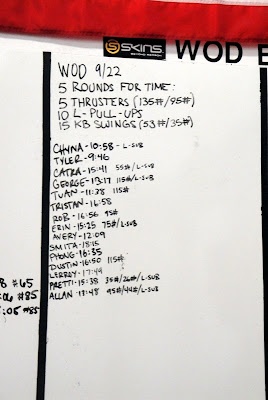 SKINS
WOD
WOD 9/22
5 ROUNDS FOR TIME:
5 THRUSTERS (135#/95#)
10 L-PULL-UPS
15 KB SWINGS (53#/35#)
CHYNA-10:58- L-SUB
TYLER-9:46
CATKA-15:41 55#/L-SUB
GEORGE-13:17 115#/L-SUB
TUAN-11:38 115#
TRISTAN-16:58
ROB-16:56 95#
ERIN-15:25 75#/L-SUB
AVERY-12:09
SMITA-18:15
PHONG-16:35
DUSTIN-16:50 115#
LEROY-17:49
PRETTI-15:38 35#/26#/L-SUB
ALLAN-17:48 95#/44#/L-SUB
#65
#85
:05 #85